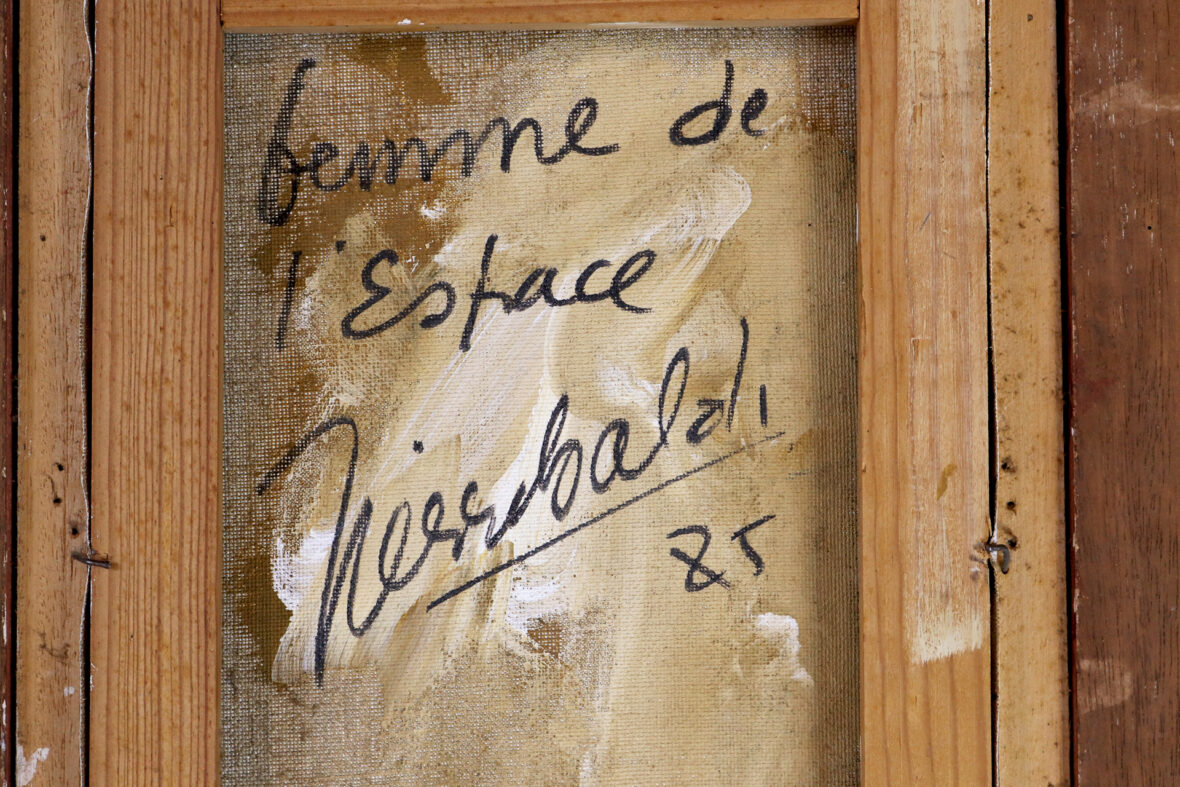 femme de
l'Espace
85